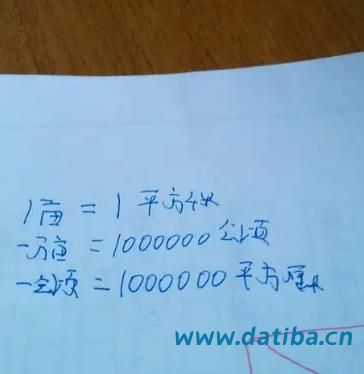 1亩=1平方米
一万亩=1000000公顷
一公顷=1000000平方厘米
www.datiba.cn